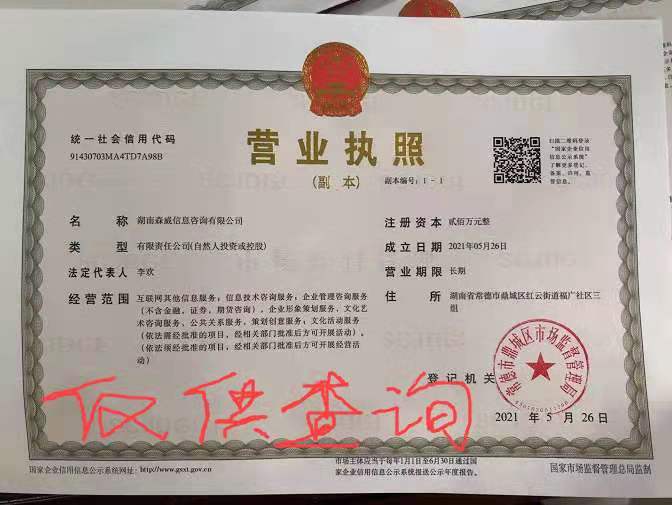 统一社会信用代码
91430703MA4TD7A98B
营业执照
(副本)
副本编号：1-1
扫描二维码登录
“国家企业信用
信息公示系统”
了解更多登记、
备案、许可、监
管信息。
名称 湖南森威信息咨询有限公司
类型 有限责任公司(自然人投资或控股)
法定代表人 李欢
经营范围 互联网其他信息服务；信息技术咨询服务；企业管理咨询服务
（不含金融、证券、期货咨询）、企业形象策划服务、文化艺
术咨询服务、公共关系服务、策划创意服务；文化活动服务
（依法需经批准的项目，经相关部门批准后方可开展活动）。
（依法须经批准的项目，经相关部门批准后方可开展经营活
动）
注册资本 贰佰万元整
成立日期 2021年05月26日
营业期限 长期
住所 湖南省常德市鼎城区红云街道福广社区三
组
登记机关
常德市鼎城区市场监督管理局
2021年5月26日
仅供查询
国家企业信用信息公示系统网址：http://www.gsxt.gov.cn
市场主体应当于每年1月1日至6月30日通过国
家企业信用信息公示系统报送公示年度报告。
国家市场监督管理总局监制